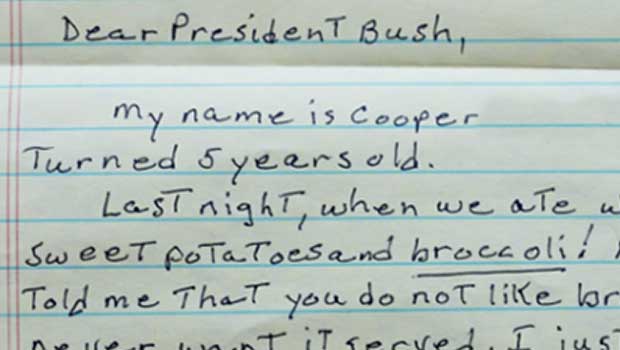 Dear President Bush,
my name is Cooper
Turned 5 years old.
Last night, when we ate
sweet potatoes and broccoli!
Told me that you do not like
it served. I